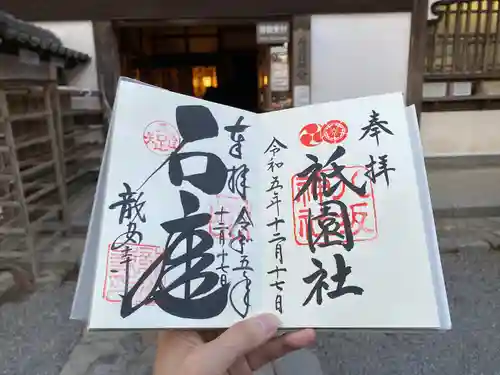 奉拝
祇園社
令和五年十二月十七日
八坂
神社
奉拝 令和五年
十二月十七日
石座
龍安寺